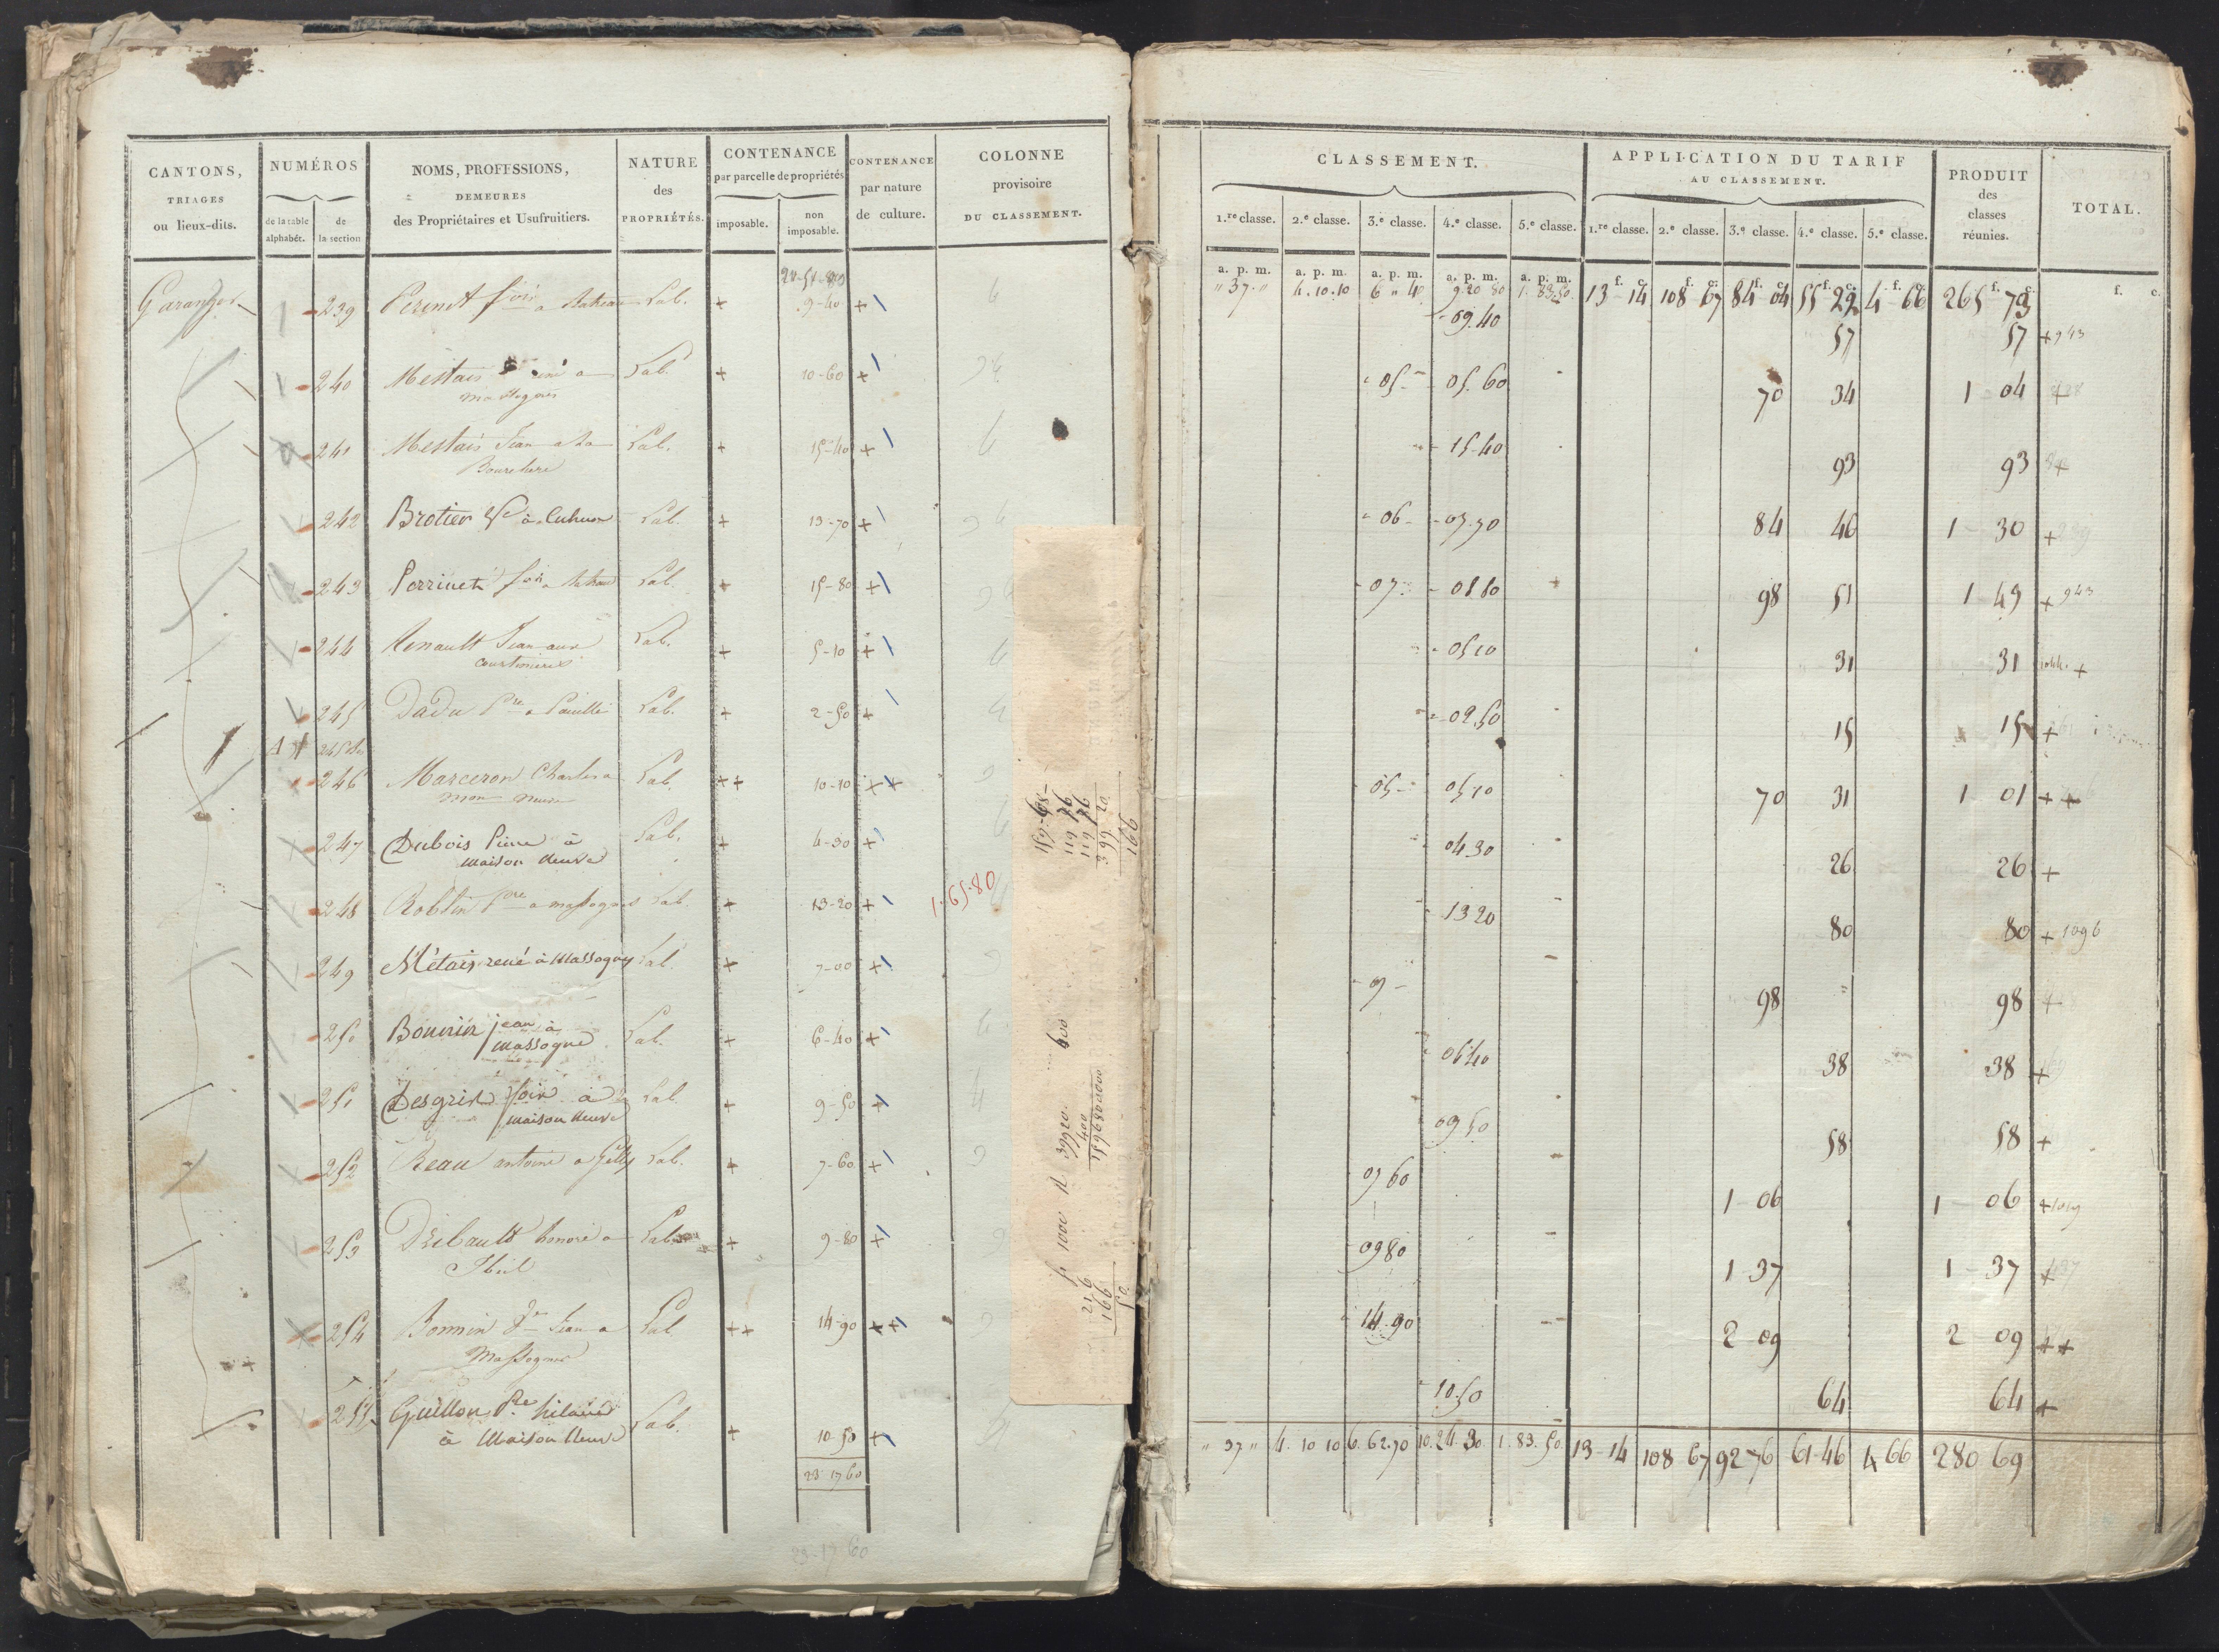 CANTONS, TRIAGES ou lieux-dits.
NUMÉROS de la table alphabét. de la section
NOMS, PROFESSIONS, DEMEURES des Propriétaires et Usufruitiers.
NATURE des PROPRIÉTÉS.
CONTENANCE par parcelle de propriétés imposable. non imposable.
CONTENANCE par nature de culture.
COLONNE provisoire DU CLASSEMENT.
239 Perinet Lab. + 9-40 +
240 Mestais a Massognes Lab. + 10-60 +
241 Mestais Jean a la Lab. + 15-40 +
242 Brotier à Cuhuon Lab. + 13-70 +
243 Perrinet Lab. + 15-80 +
244 Renault Jean aux Courtinieres Lab. + 5-10 +
245 Dadu Pre a Lab. + 2-50 +
246 Marceron Charles a Lab. ++ 10-10 ++
247 Dubois Pierre à Maison Neuve Lab. + 4-30 +
248 Roblin Pre a Massognes Lab. + 13-20 + 1-65-80
249 Métais rené à Massogne Lab. + 7-00 +
250 Bonnin jean à Massogne Lab. + 6-40 +
251 Desgris à Maison Neuve Lab. + 9-50 +
252 Reau antoine a Lab. + 7-60 +
253 honoré a Lab. + 9-80 +
254 Bonnin Jean a Massognes Lab ++ 14-90 ++
255 Guillon Pre hilaire à Maison Neuve Lab. + 10-50 +
23 17 60
23-17 60
119 76
119 76
399 20
166
1000
39920
400
600
216
166
50
CLASSEMENT.
1.re classe. 2.e classe. 3.e classe. 4.e classe. 5.e classe.
APPLICATION DU TARIF AU CLASSEMENT.
1.re classe. 2.e classe. 3.e classe. 4.e classe. 5.e classe.
PRODUIT des classes réunies.
TOTAL.
a. p. m. a. p. m. a. p. m. a. p. m. a. p. m. f. c. f. c. f. c. f. c. f. c. f. c. f. c.
" 37 " 4.10.10 6 " 40 9 20 80 1.83.50 13-14 108-67 84-04 55 29 4-66 265 73
-09.40 57 57 +943
-05- -05.60 70 34 1 04 +
-15-40 93 93 +
-06- -07-70 84 46 1-30 +
-07- -08 80 98 51 1 49 +943
-05 10 31 31 +
-02.50 15 15 +
-05- 05 10 70 31 1 01 ++
04 30 26 26 +
-13 20 80 80 +1096
-07- 98 98 +
06 40 38 38 +
09 50 58 58 +
07 60 1-06 1-06 +1019
-09 80 1-37 1-37 +
-14-90 2 09 2 09 ++
-10-50 64 64 +
" 37 " 4.10 10 6.62.70 10.24.30 1.83.50 13-14 108 67 92 76 61-46 4 66 280 69